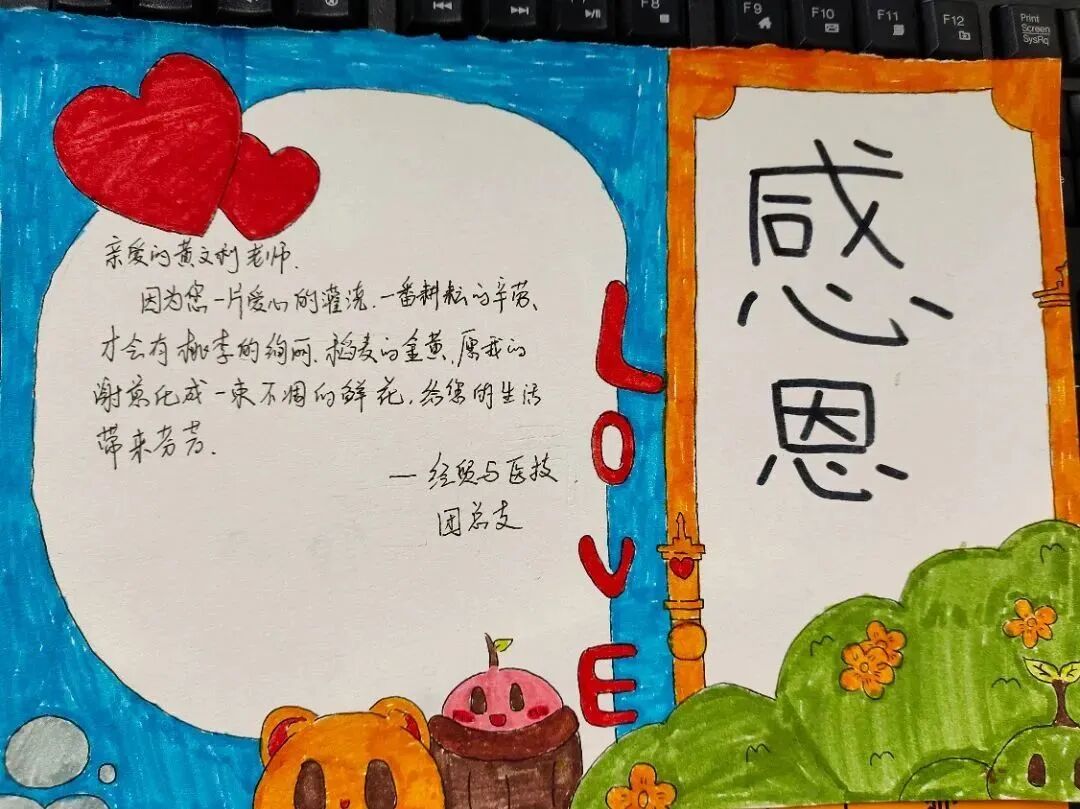 F8
F9
F10
F11
F12
Print
Screen
SysRq
亲爱的黄文利老师.
因为您一片爱心的灌浇.一番耕耘的辛劳、
才会有桃李的绚丽、稻麦的金黄、愿我的
谢意化成一束不凋的鲜花,给您的生活
带来芬芳.
— 经贸与医技
团总支
LOVE
感
恩